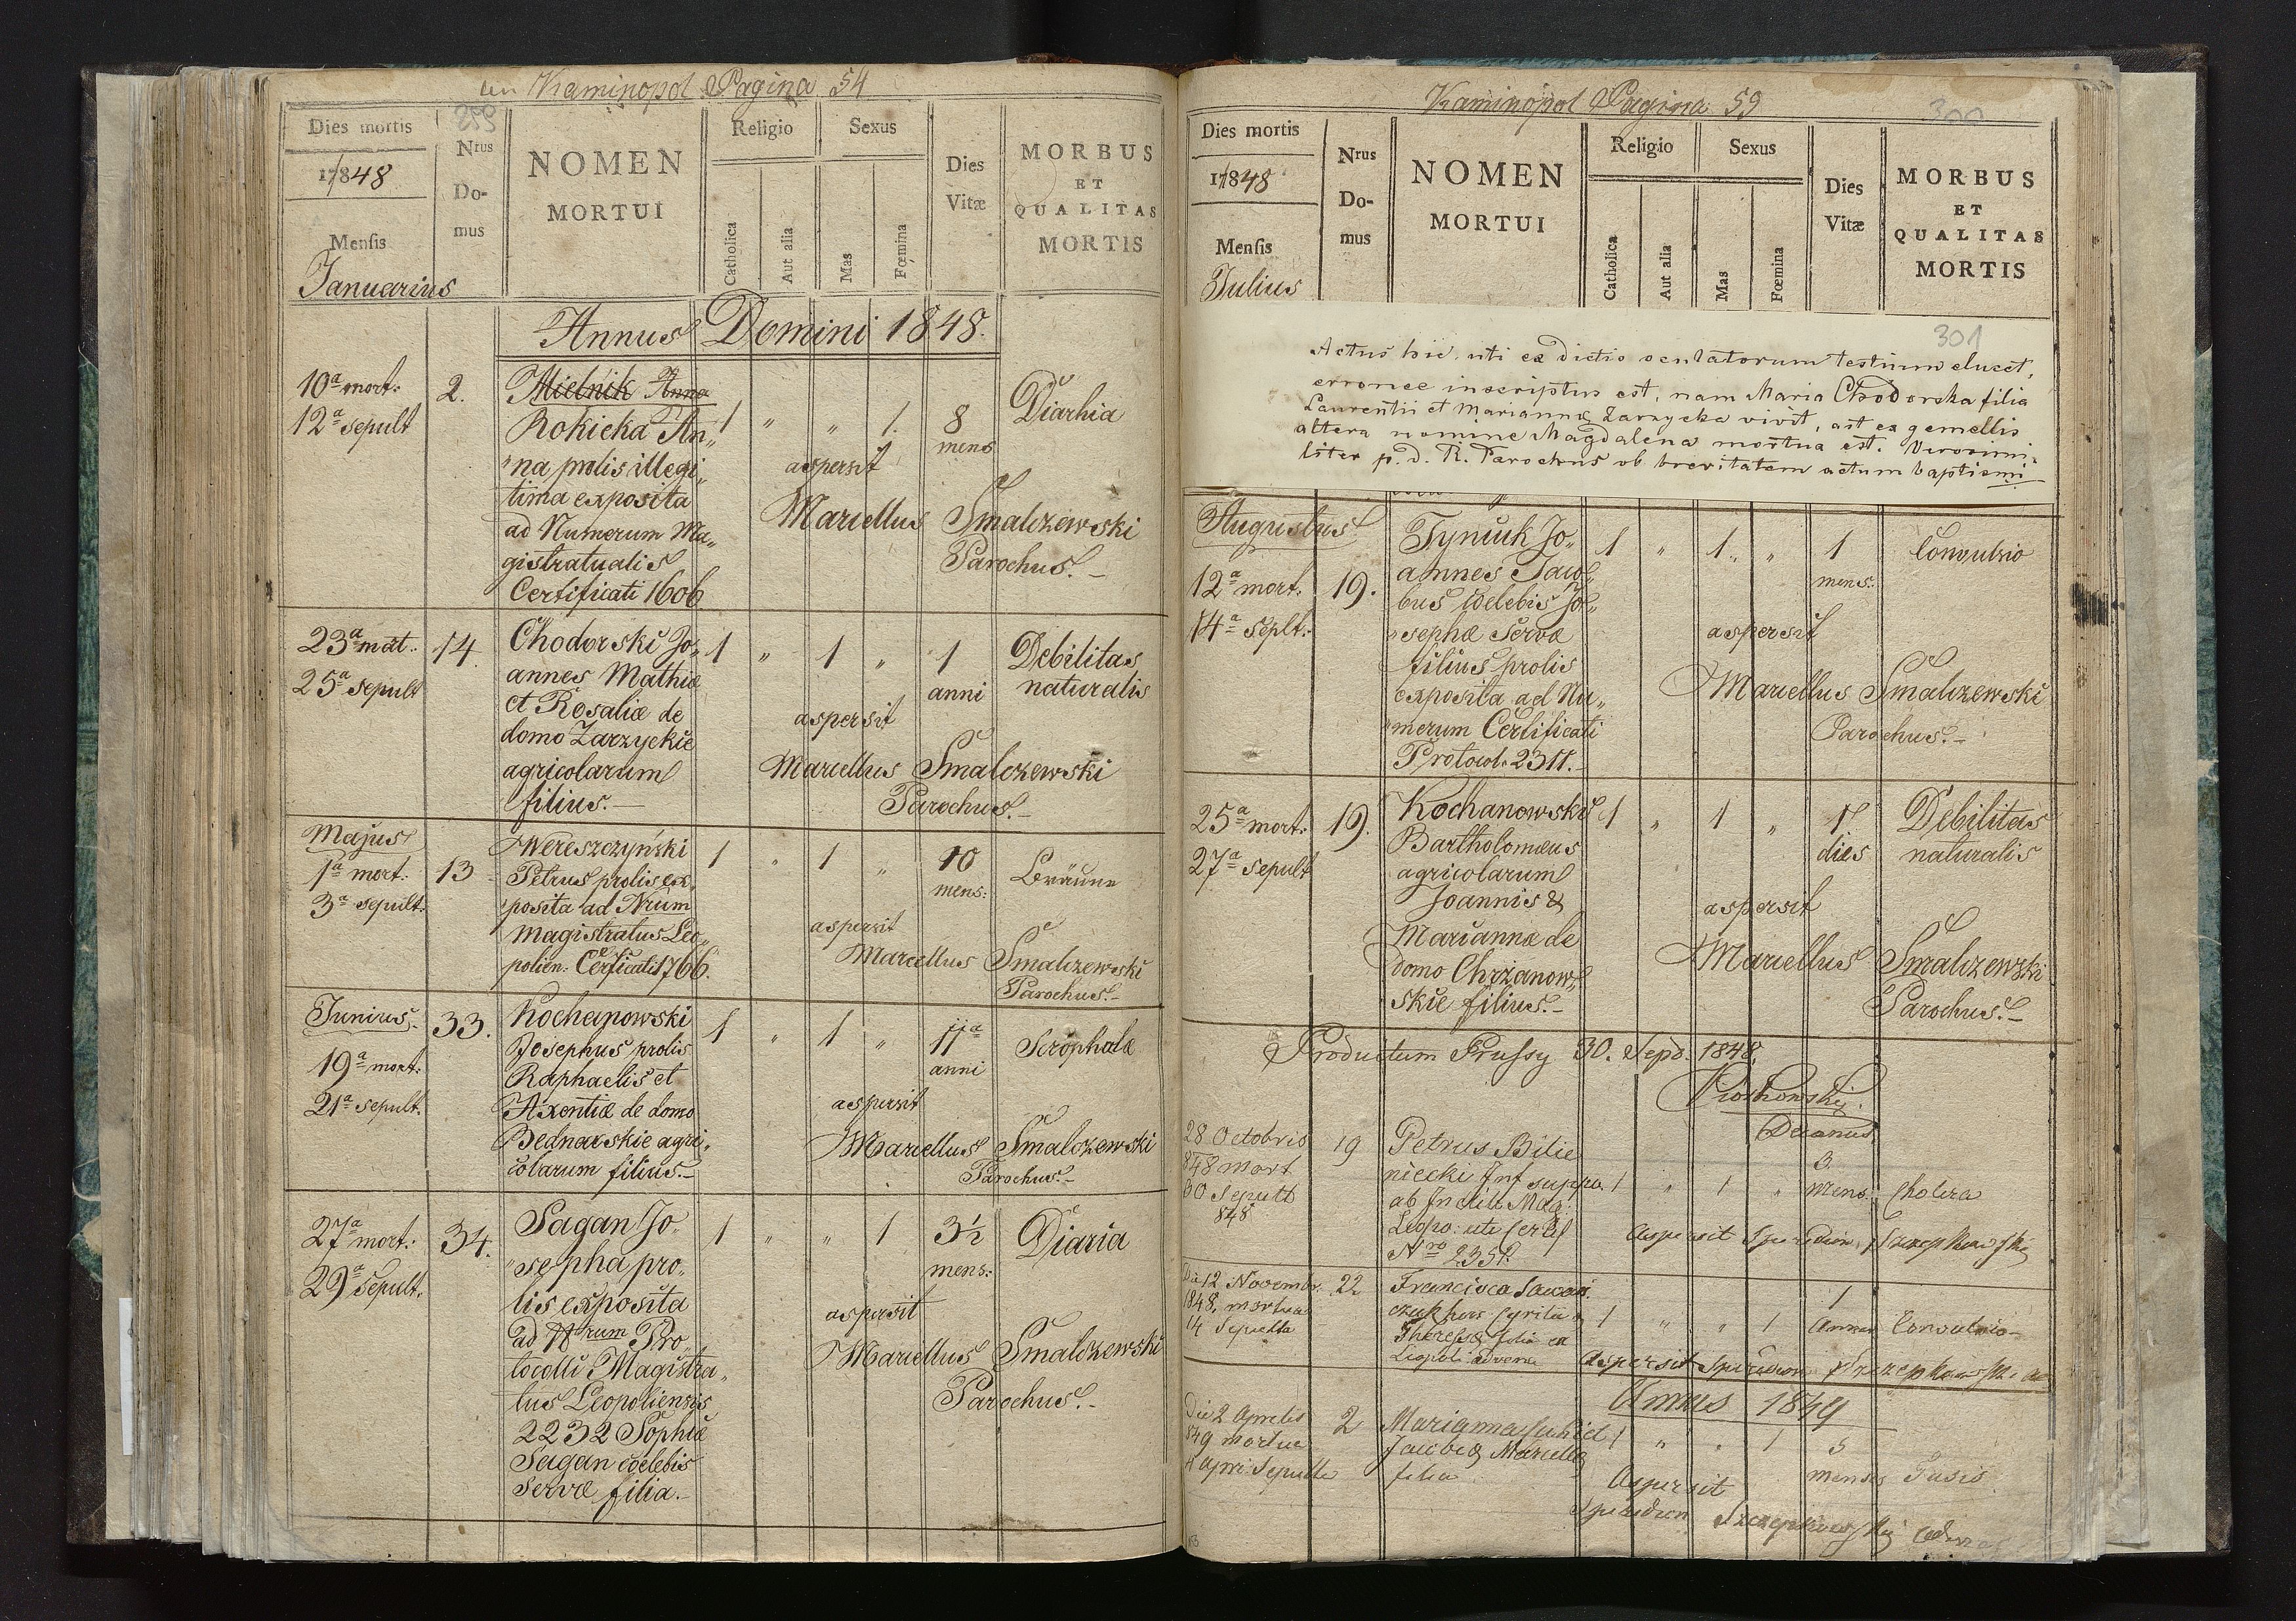 in Kaminopol Pagina 54
299
Dies mortis
1848
Mensis
Januarius
Nrus
Do-
mus
NOMEN
MORTUI
Religio
Catholica
Aut alia
Sexus
Mas
Fœmina
Dies
Vitæ
MORBUS
ET
QUALITAS
MORTIS
Annus Domini 1848.
10ª mort:
12ª sepult
2.
Mielnik Anna
Rokicka An„
„na prolis illegi„
tima exposita
ad Numerum Ma„
gistratualis
Certificati 1606
1 „ „ 1.
8
mens
Diarhia
aspersit
Marcellus Smalczewski
Parochus.–
23ª mort:
25ª sepult
14.
Chodorski Jo„
annes Mathiæ
et Rosaliæ de
domo Zarzyckie
agricolarum
filius.–
1 „ 1 „
1
anni
Debilitas
naturalis
aspersit
Marcellus Smalczewski
Parochus.–
Majus
1ª mort:
3ª sepult:
13
Wereszczyński
Petrus prolis ex„
posita ad Nrum
Magistratus Leo„
polien: Certificati 1766.
1 „ 1 „
10
mens:
Bräune
aspersit
Marcellus Smalczewski
Parochus.–
Junius.
19ª mort:
21ª sepult.
33.
Kochanowski
Josephus prolis
Raphaelis et
Axentiæ de domo
Bednarskie agri„
colarum filius.–
1 „ 1 „
11ª
anni
Scrophulæ
aspersit
Marcellus Smalczewski
Parochus.–
27ª mort:
29ª sepult.
34.
Sagan Jo„
„sepha pro„
lis exposita
ad Nrum Pro„
tocolli Magistra„
tus Leopoliensis
2232 Sophiæ
Sagan cœlebis
servæ filia.–
1 „ „ 1
3½
mens:
Diaria
aspersit
Marcellus Smalczewski
Parochus.–
Kaminopol Pagina 59
300
Dies mortis
1848
Mensis
Julius
Nrus
Do-
mus
NOMEN
MORTUI
Religio
Catholica
Aut alia
Sexus
Mas
Fœmina
Dies
Vitæ
MORBUS
ET
QUALITAS
MORTIS
301
Actus hic, uti ex dictis oculatorum testium elucet,
erronee inscriptus est, nam Maria Chodorska filia
Laurentii et Mariannæ Zarzycka vivit, ast ex gemellis
altera nomine Magdalena mortua est. Verosimi-
liter p. d. R. Parochus ob brevitatem actum baptismi
Augustus
12ª mort.
14ª seplt:
19.
Tyniuk Jo„
annes Jaco„
bus cœlebis Jo„
„sephæ Servæ
filius prolis
exposita ad Nu„
„merum Certificati
Protocol. 2311.–
1 „ 1 „
1
mens:
Convulsio
aspersit
Marcellus Smalczewski
Parochus.–
25ª mort:
27ª sepult
19.
Kochanowski
Bartholomæus
agricolarum
Joannis &
Mariannæ de
domo Chrzanow„
skie filius.–
1 „ 1 „
17
dies
Debilitas
naturalis
aspersit
Marcellus Smalczewski
Parochus.–
Productum Prussy 30. Sept. 1848.
Decanus
28 Octobris
848 mort
30 Sepult
848
19
Petrus Bilie
niecki Inf suppo.
ab Inclito Mag:
Leopo: uti Certif
Nro 2352.
1 „ 1 „
3
mens:
Cholera
Aspersit Spiridion Szczepkowski
Die 12 Novembr.
1848. mortua
14 Sepulta
22
Francisca
Cyrilli &
Theresæ filia ex
Leopoli advena
1 „ „ 1
1
annus
Convulsio
Aspersit Spiridion Szczepkowski
Annus 1849
Die 2 Aprilis
849 mortua
4 Apri: Sepulta
2
Marianna
Jacobi & Marcella
filia
1 „ „ 1
5
menses
Aspersit
Spiridion Szczepkowski